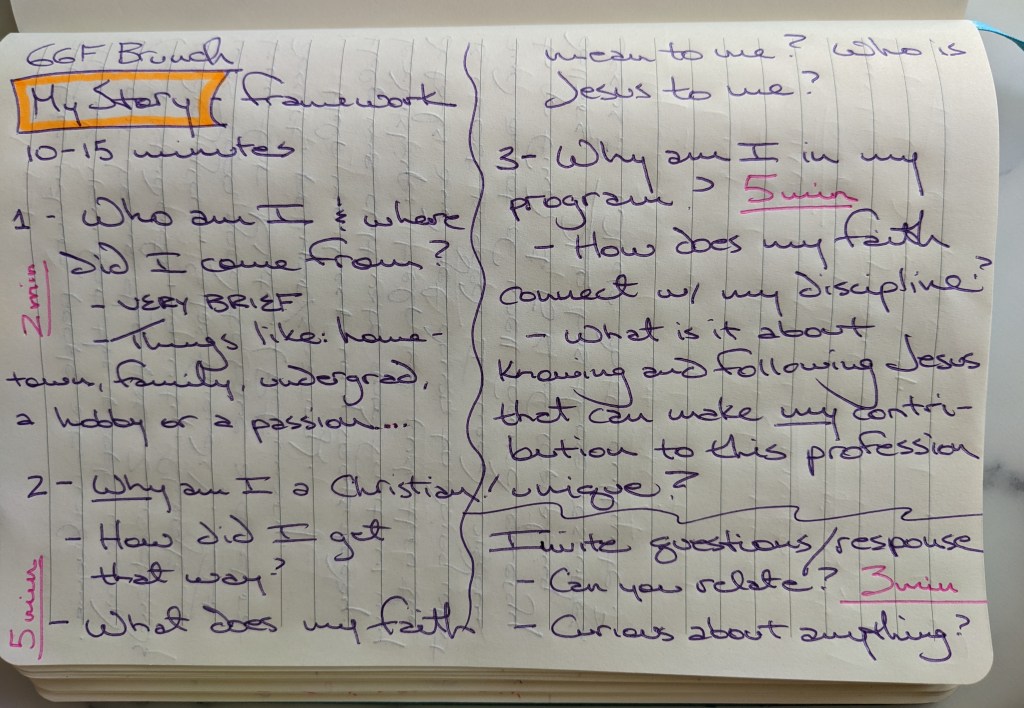 GGF Brunch
My Story - framework
10-15 minutes
1 - Who am I & where
did I come from?
- VERY BRIEF
- Things like: home-
town, family, undergrad,
a hobby or a passion...
2 min
2 - Why am I a Christian?
- How did I get
that way?
- What does my faith
5 min
mean to me? Who is
Jesus to me?
3 - Why am I in my
program? 5 min
- How does my faith
connect w/ my discipline?
- What is it about
knowing and following Jesus
that can make my contri-
bution to this profession
unique?
Invite questions/response
- Can you relate? 3 min
- Curious about anything?